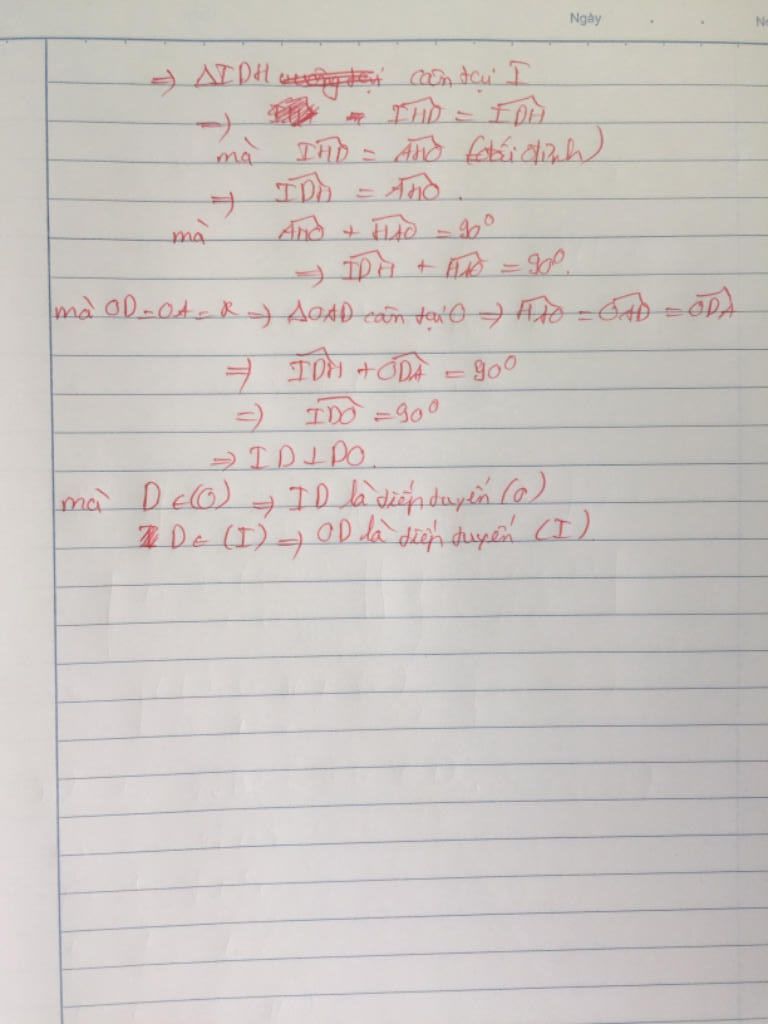 Ngày
⇒ ΔIDH cân tại I
⇒ = \widehat{IHD} = \widehat{IDH}
mà \widehat{IHD} = \widehat{AHO} (đối đỉnh)
⇒ \widehat{IDH} = \widehat{AHO}.
mà \widehat{AHO} + \widehat{HAO} = 90°
⇒ \widehat{IDH} + \widehat{HAO} = 90°.
mà OD = OA = R ⇒ ΔOAD cân tại O ⇒ \widehat{HAO} = \widehat{OAD} = \widehat{ODA}
⇒ \widehat{IDH} + \widehat{ODA} = 90°
⇒ \widehat{IDO} = 90°
⇒ ID ⊥ DO.
mà D ∈ (O) ⇒ ID là tiếp tuyến (O)
D ∈ (I) ⇒ OD là tiếp tuyến (I)